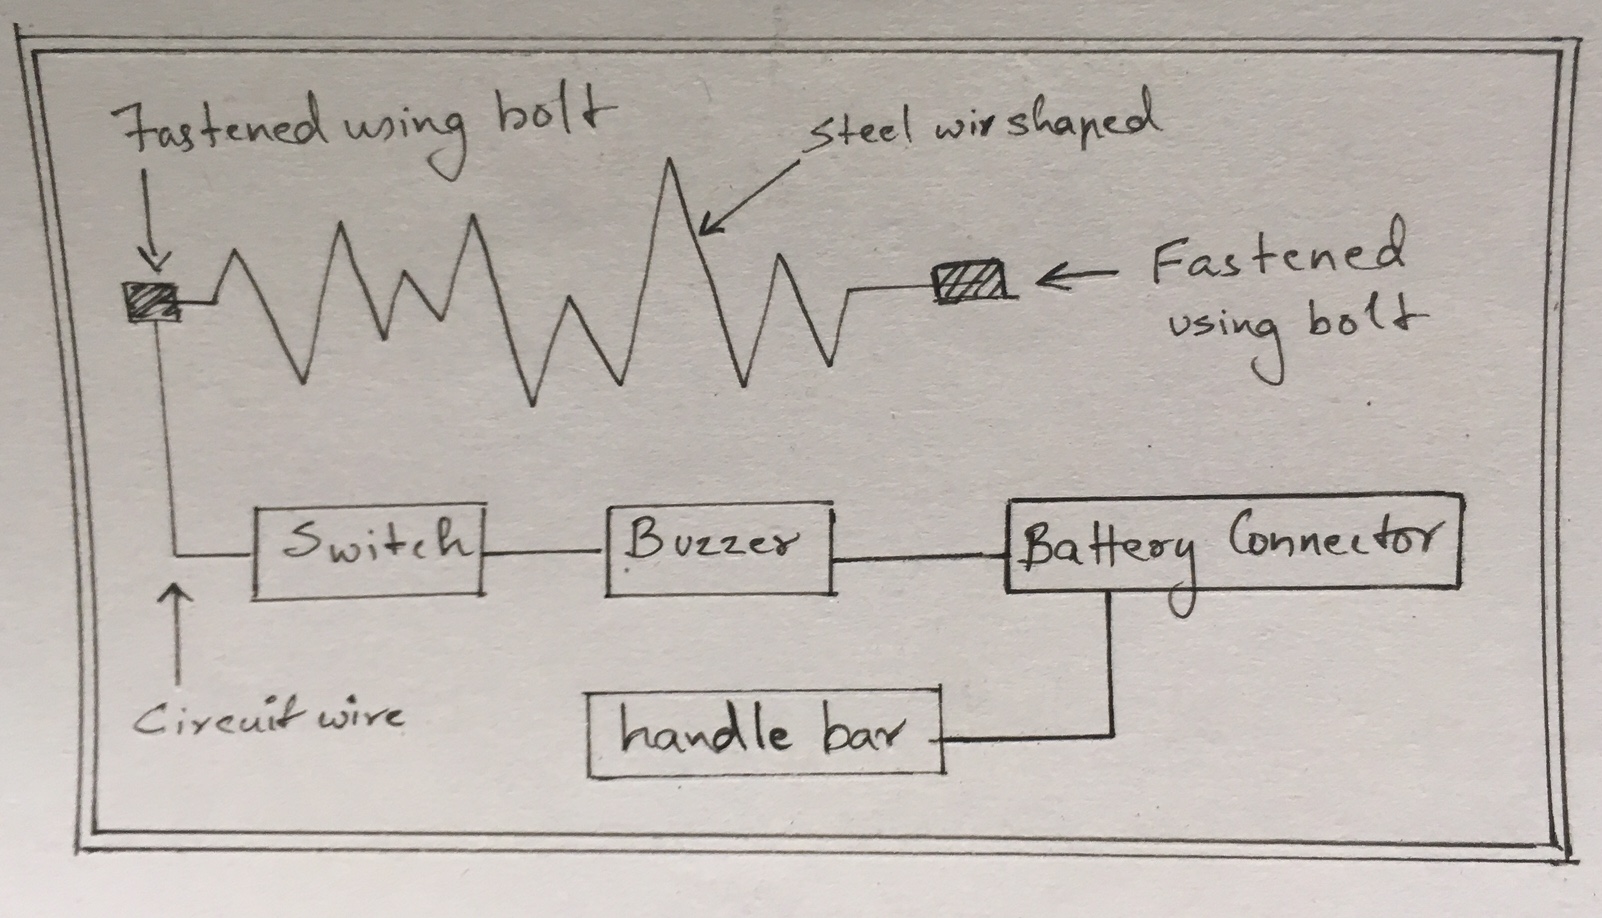 Fastened using bolt
Steel wir shaped
Fastened
using bolt
Switch
Buzzer
Battery Connector
Circuit wire
handle bar